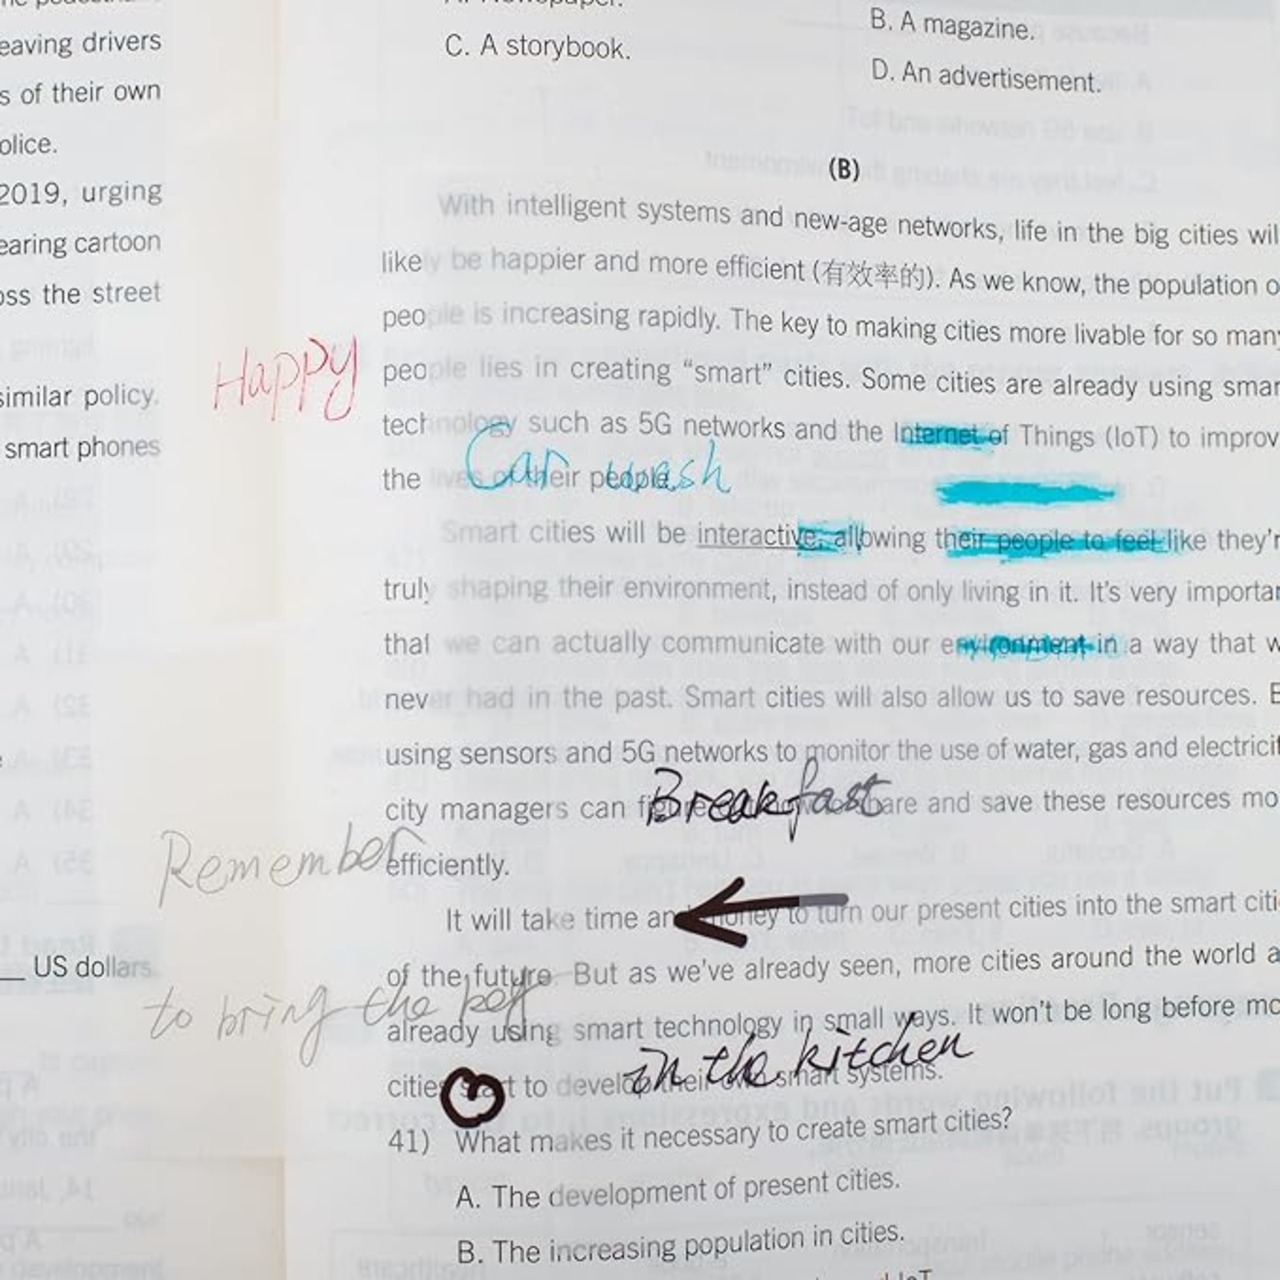 eaving drivers
s of their own
olice.
2019, urging
earing cartoon
oss the street
similar policy.
smart phones
US dollars.
A. Newspaper.
B. A magazine.
C. A storybook.
D. An advertisement.
(B)
With intelligent systems and new-age networks, life in the big cities wil
likely be happier and more efficient (有效率的). As we know, the population o
people is increasing rapidly. The key to making cities more livable for so many
people lies in creating “smart” cities. Some cities are already using smar
technology such as 5G networks and the Internet of Things (IoT) to improv
the lives of their people.
Smart cities will be interactive, allowing their people to feel like they’r
truly shaping their environment, instead of only living in it. It’s very importan
that we can actually communicate with our environment in a way that w
never had in the past. Smart cities will also allow us to save resources. B
using sensors and 5G networks to monitor the use of water, gas and electricit
city managers can figure out how to share and save these resources mo
efficiently.
It will take time and money to turn our present cities into the smart citi
of the future. But as we’ve already seen, more cities around the world a
already using smart technology in small ways. It won’t be long before mo
cities start to develop their own smart systems.
41) What makes it necessary to create smart cities?
A. The development of present cities.
B. The increasing population in cities.
Happy
Car wash
Breakfast
Remember
to bring the
in the kitchen